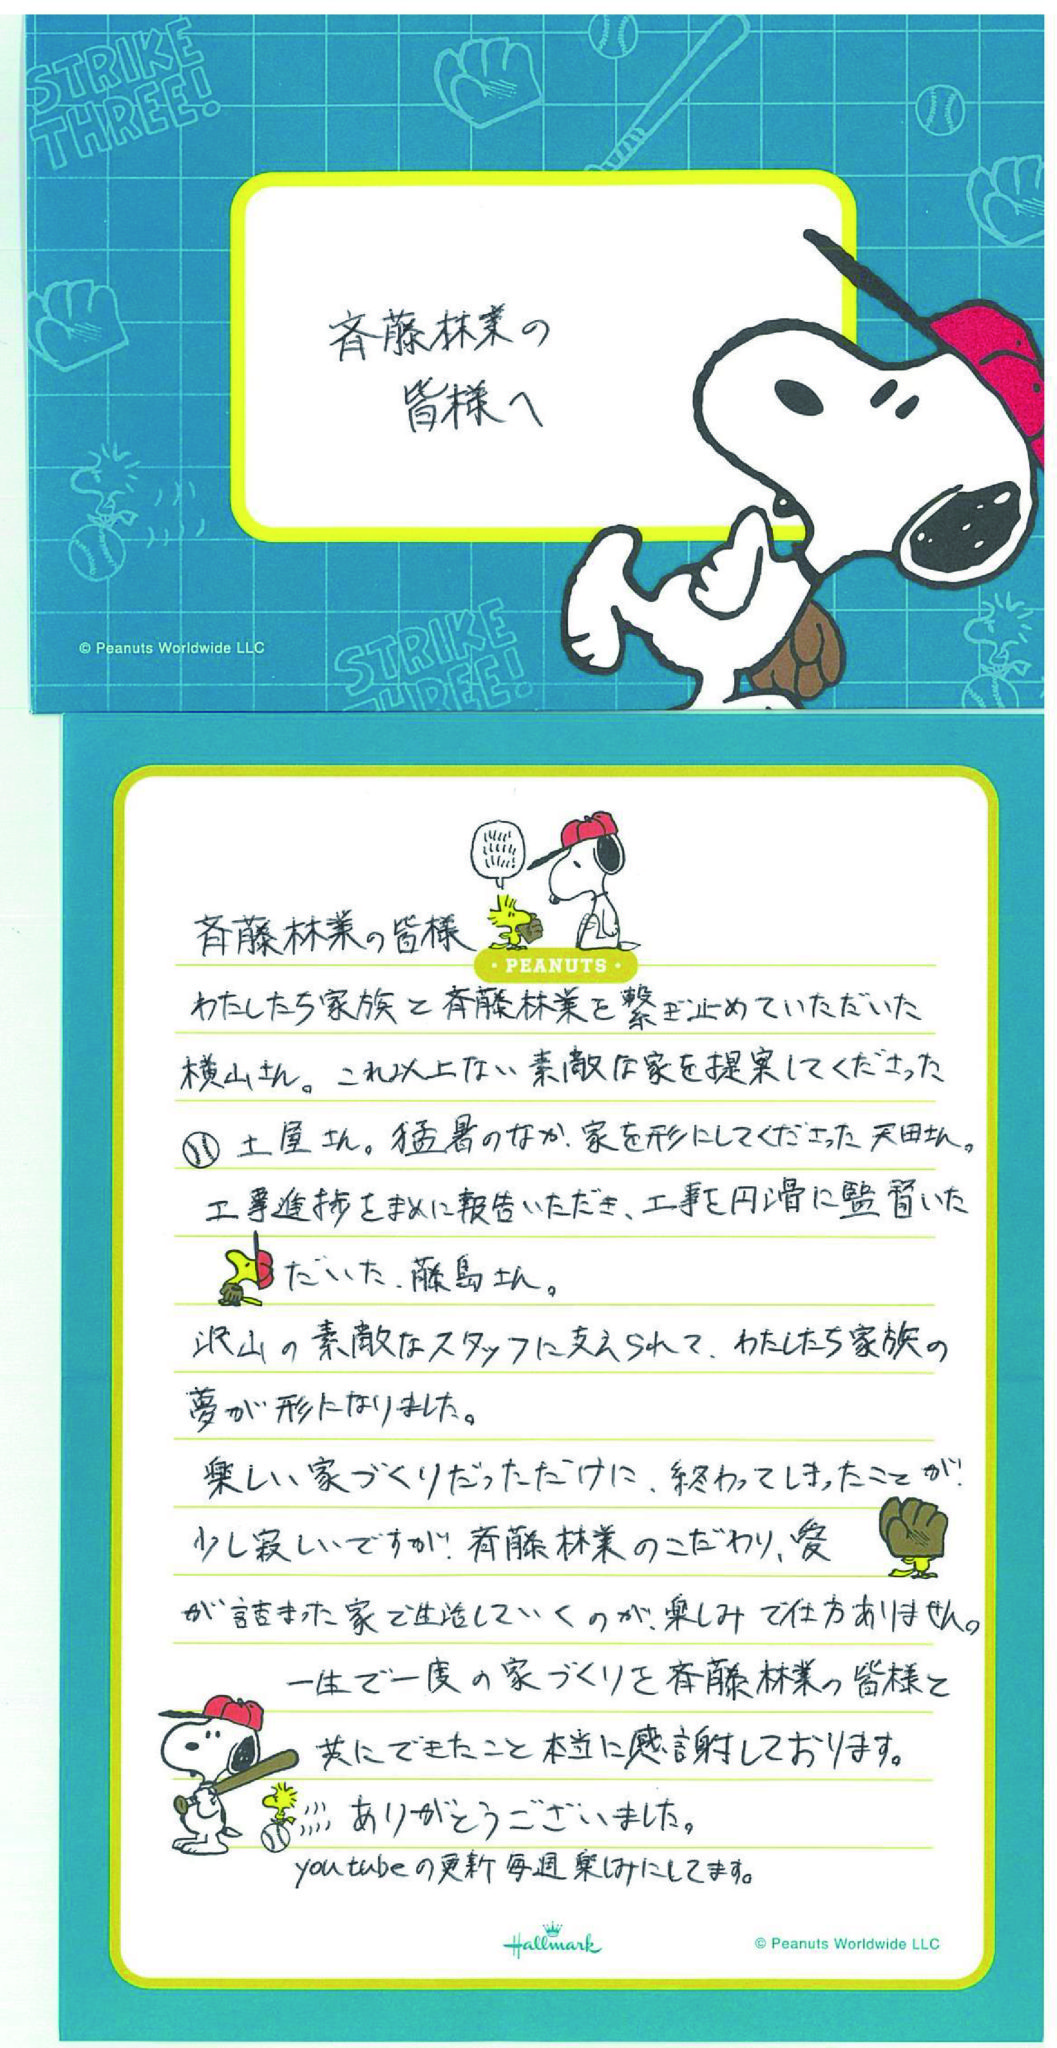 STRIKE
THREE!
斉藤林業の
皆様へ
© Peanuts Worldwide LLC
STRIKE
THREE!
斉藤林業の皆様
・PEANUTS・
わたしたち家族と斉藤林業を繋ぎ止めていただいた
横山さん。これ以上ない素敵な家を提案してくださった
土屋さん。猛暑のなか、家を形にしてくださった天田さん。
工事進捗をまめに報告いただき、工事を円滑に監督いた
だいた、藤島さん。
沢山の素敵なスタッフに支えられて、わたしたち家族の
夢が形になりました。
楽しい家づくりだっただけに、終わってしまったことが、
少し寂しいですが、斉藤林業のこだわり、愛
が詰まった家で生活していくのが、楽しみで仕方ありません。
一生で一度の家づくりを斉藤林業の皆様と
共にできたこと本当に感謝しております。
ありがとうございました。
youtubeの更新毎週楽しみにしてます。
Hallmark
© Peanuts Worldwide LLC